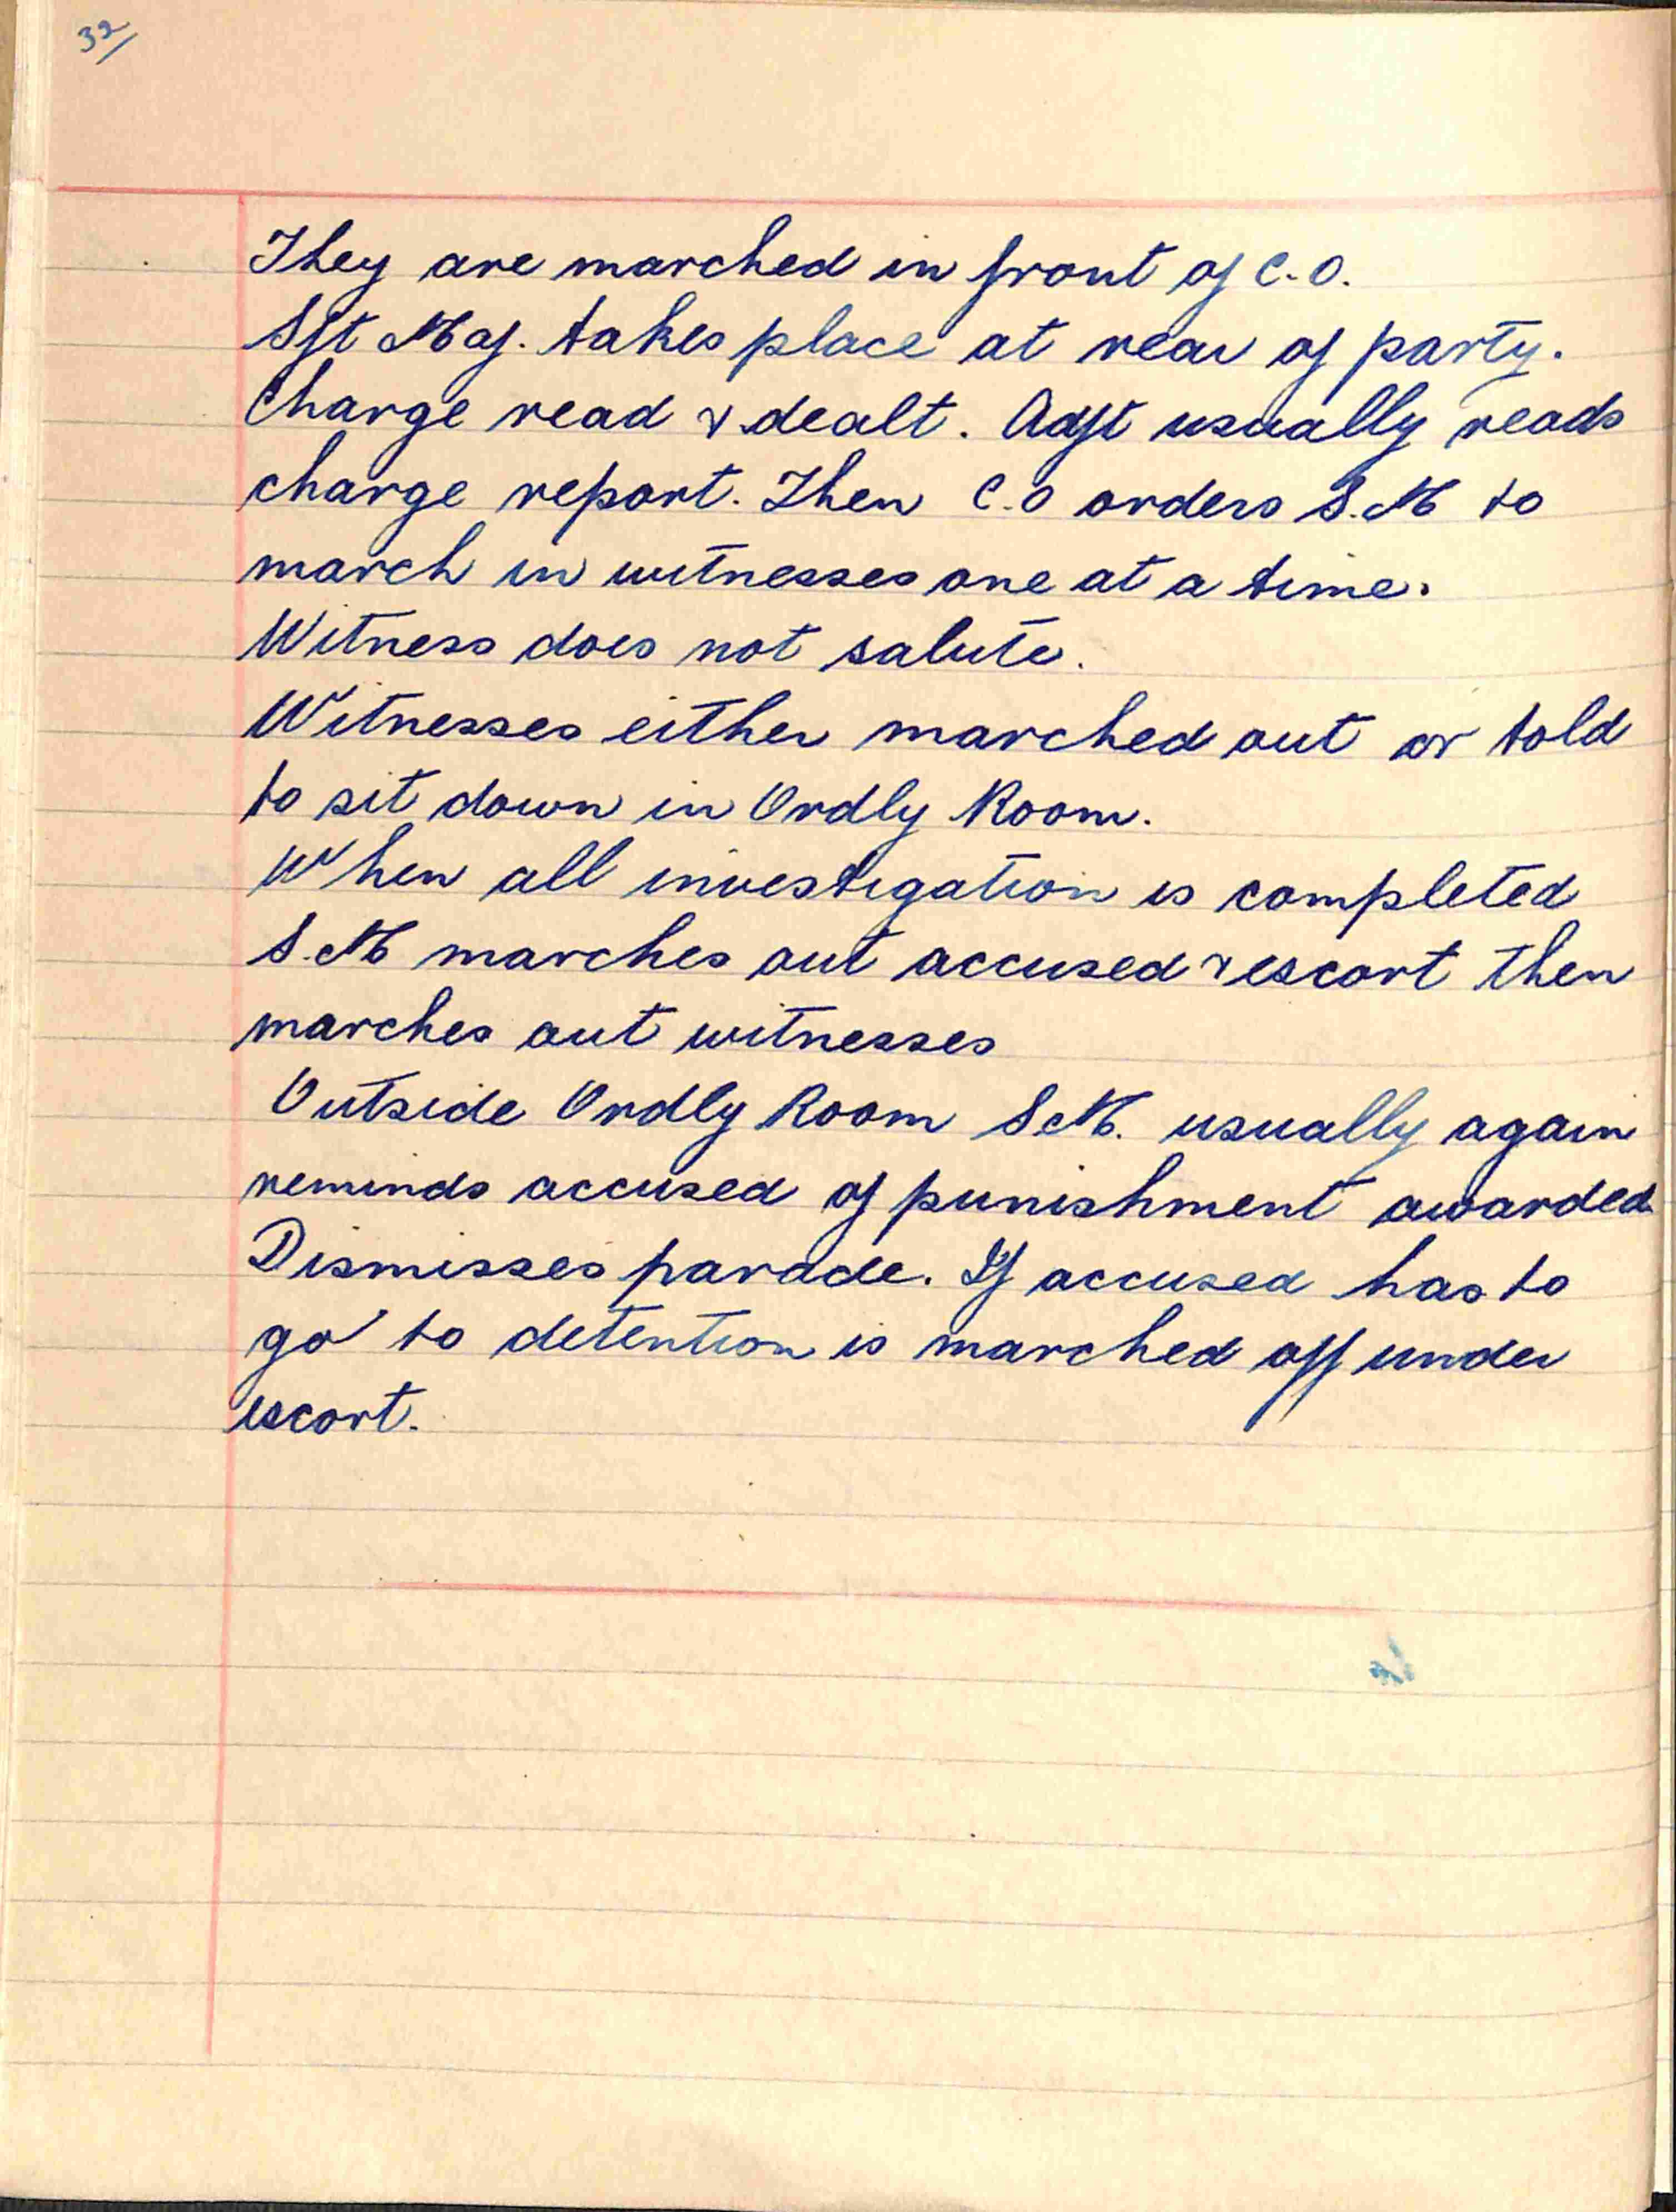 32
They are marched in front of C.O.
Sgt Maj. takes place at rear of party.
Charge read & dealt. Adjt usually reads
charge report. Then C.O orders S.M to
march in witnesses one at a time.
Witness does not salute.
Witnesses either marched out or told
to sit down in Ordly Room.
When all investigation is completed
S.M marches out accused & escort then
marches out witnesses
Outside Ordly Room S.M. usually again
reminds accused of punishment awarded
Dismisses parade. If accused has to
go to detention is marched off under
escort.